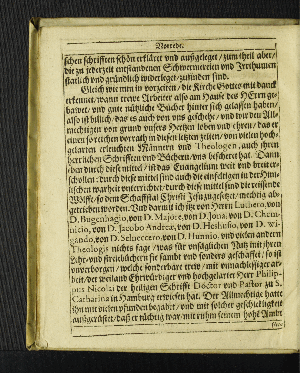 Vorrede.
schen schrifften schön erkläret und außgeleget / zum theil aber /
die zu jederzeit entstandenen Schwermereien und Irrthumen
stattlich und gründlich widerleget / zufinden sind.
Gleich wie nun in vorzeiten / die Kirche Gottes mit danck
erkennet / wann trewe Arbeiter also am Hause des HErrn ge-
bawet / und gute nützliche Bücher hinter sich gelassen haben /
also ist billich / das es auch von uns geschehe / und wir den All-
mechtigen von grund unsers Hertzen loben und ehren / das er
einen so reichen vorrath in diesen letzten zeiten / von vielen hoch-
gelarten erleuchten Männern und Theologen, auch ihren
herrlichen Schrifften und Büchern / uns bescheret hat. Dann
eben durch diese mittel / ist das Evangelium weit und breit er-
schollen: durch diese mittel sind auch die einfeltigen in der Him-
lischen warheit unterrichtet / durch diese mittel sind die reissende
Wölffe / so dem Schaffstall Christi Jesu zugesetzet / mechtig ab-
getrieben worden. Und damit ich itzt von Herrn Luthero, von
D. Bugenhagio, von D. Majore, von D. Jona, von D. Chem-
nicio, von D. Jacobo Andreæ, von D. Heshusio, von D. Wi-
gando, von D. Selneccero, von D. Hunnio, und vielen andern
Theologis nichts sage / was für unsäglichen Nutz mit ihren
Lehr- und streitbüchern sie sambt und sonders geschaffet / so ist
unverborgen / welche sonderbare trew / mit unnachlessiger ar-
beit / der weiland Ehrwürdiger und hochgelarter Herr Philip-
pus Nicolai der heiligen Schrifft Doctor und Pastor zu S.
Catharina in Hamburg erwiesen hat. Der Allmechtige hatte
Ihn mit vielen pfunden begabet / und mit solcher geschickligkeit
außgerüstet / daß er tüchtig war mit ruhm seinem hohe Ambt